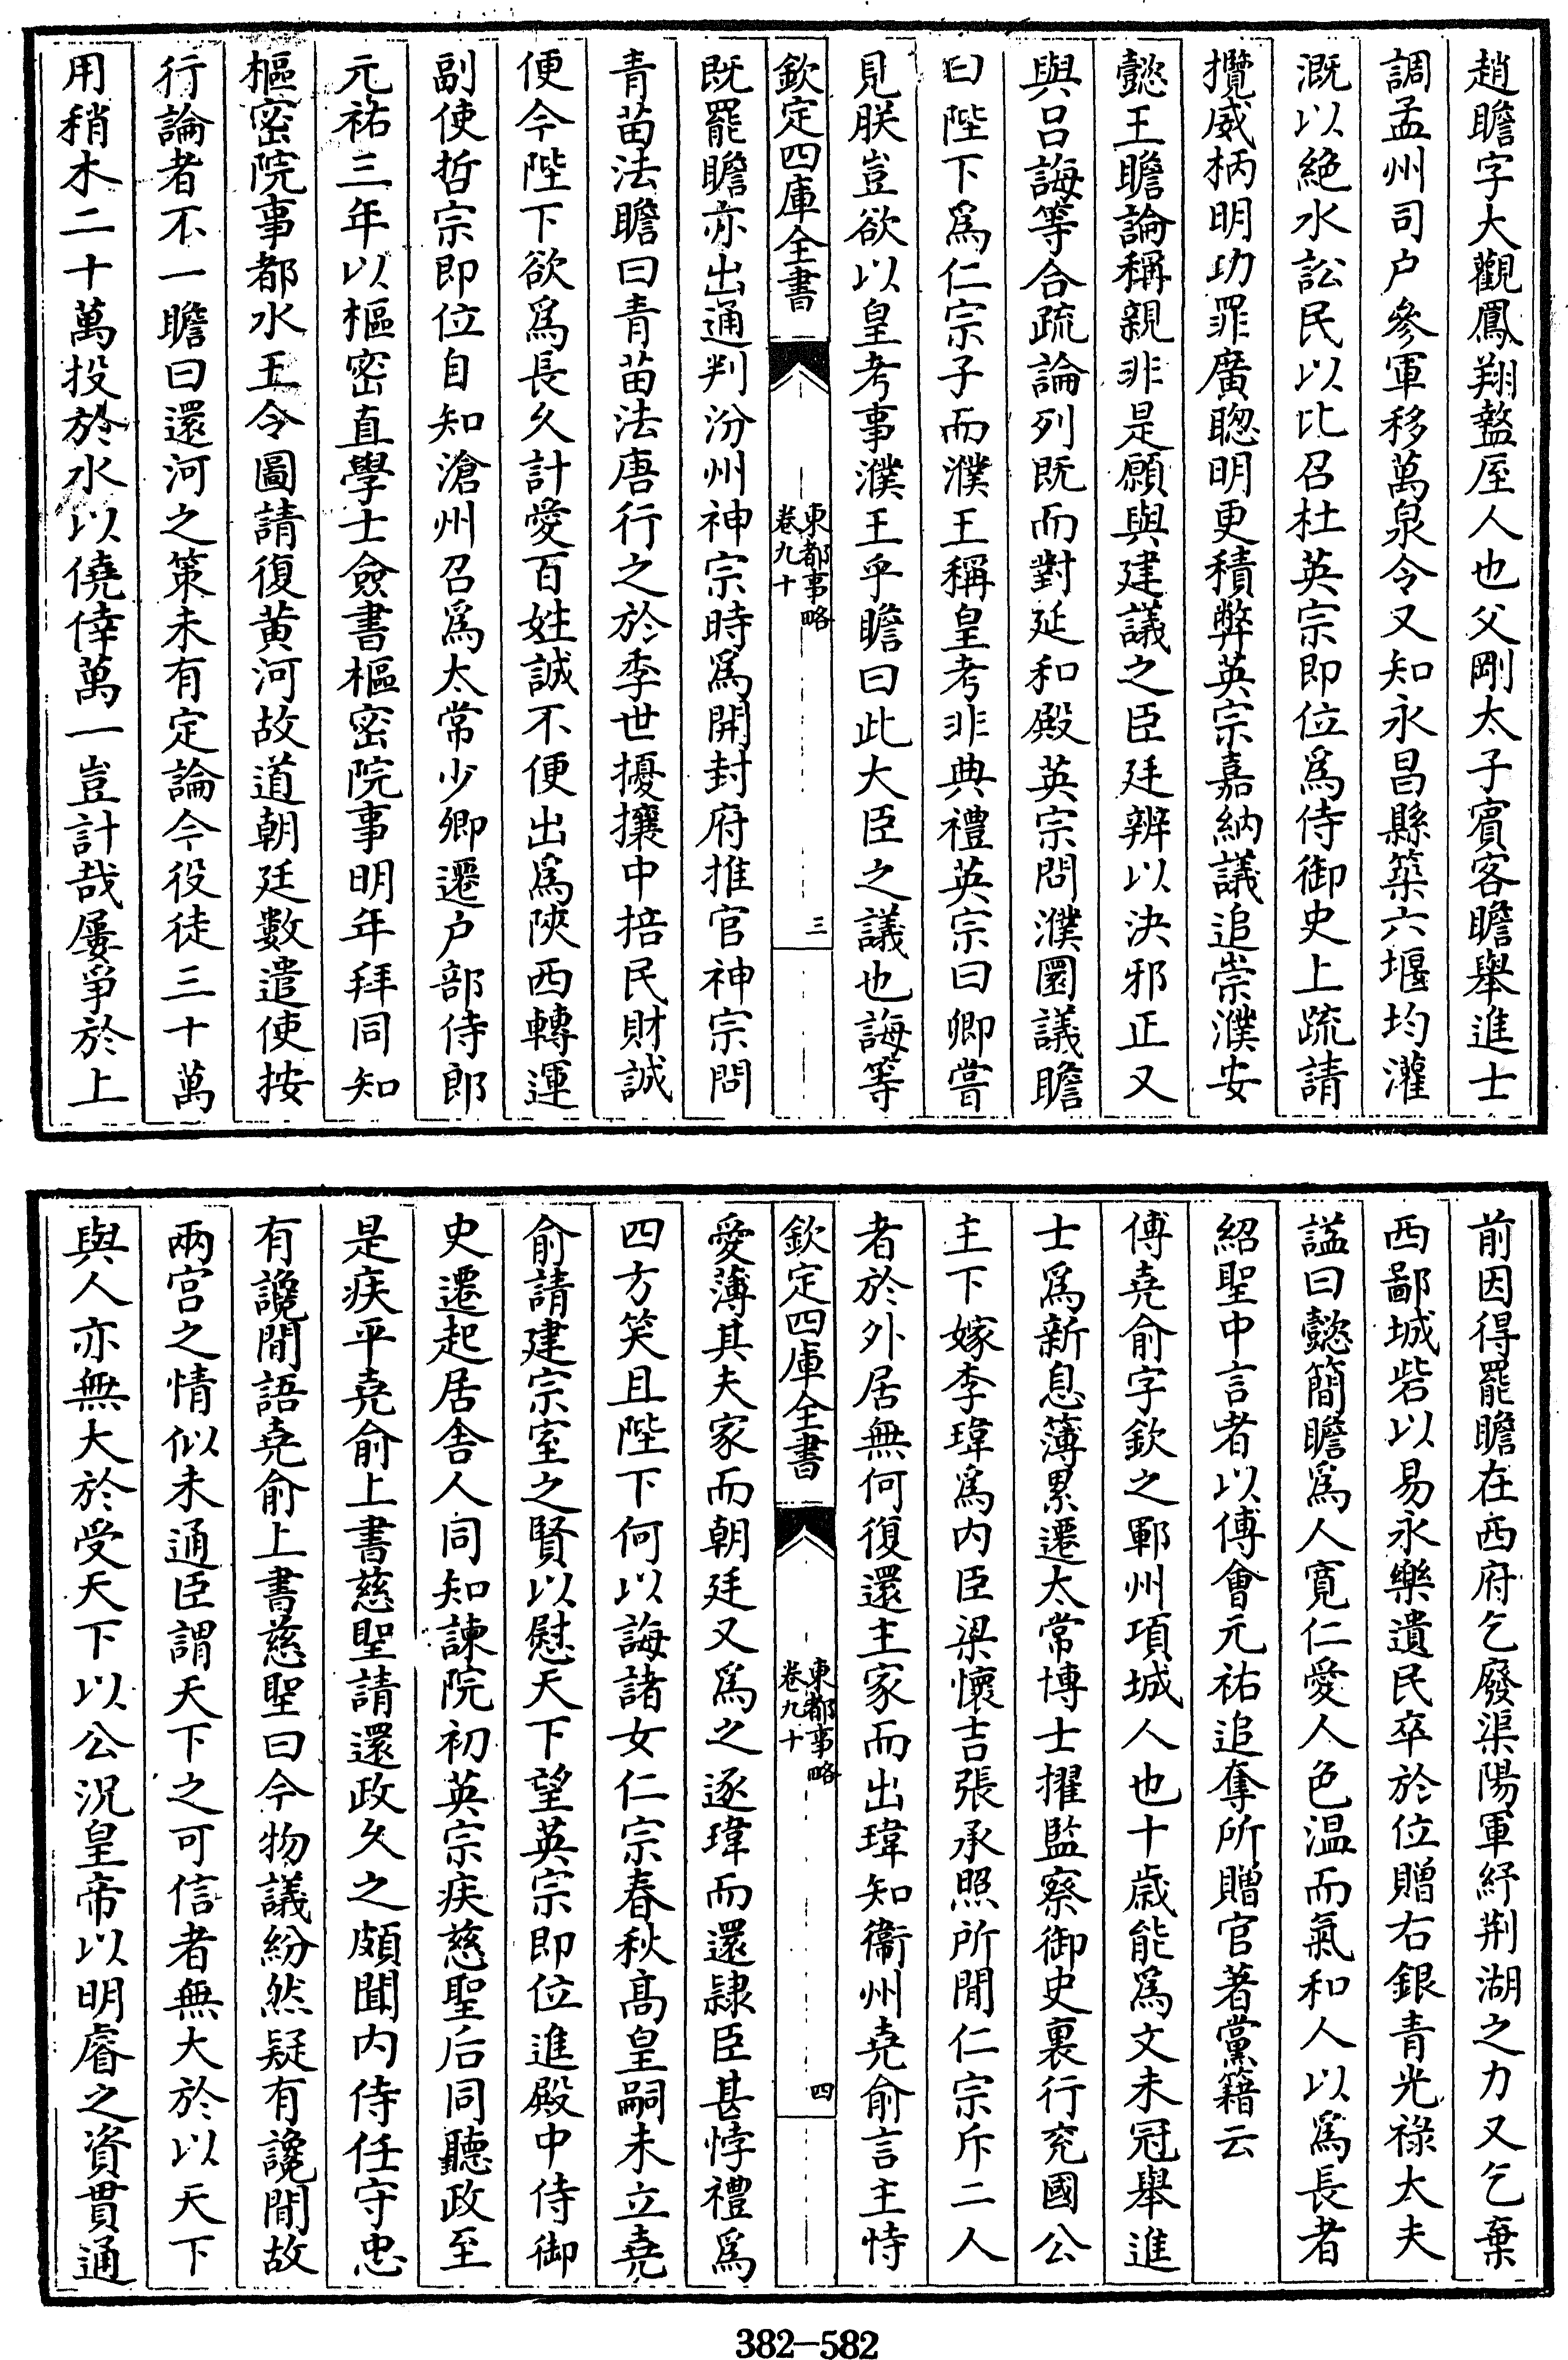 趙瞻字大觀鳳翔盩厔人也父剛太子賓客瞻舉進士
調孟州司户參軍移萬泉令又知永昌縣築六堰均灌
溉以絶水訟民以比召杜英宗即位爲侍御史上疏請
攬威柄明功罪廣聦明更積弊英宗嘉納議追崇濮安
懿王瞻論稱親非是願與建議之臣廷辨以決邪正又
與吕誨等合疏論列既而對延和殿英宗問濮園議瞻
曰陛下爲仁宗子而濮王稱皇考非典禮英宗曰卿嘗
見朕豈欲以皇考事濮王乎瞻曰此大臣之議也誨等
欽定四庫全書
東都事略
卷九十
三
既罷瞻亦出通判汾州神宗時爲開封府推官神宗問
青苗法瞻曰青苗法唐行之於季世擾攘中掊民財誠
便今陛下欲爲長久計愛百姓誠不便出爲陜西轉運
副使哲宗即位自知滄州召爲太常少卿遷户部侍郎
元祐三年以樞密直學士僉書樞密院事明年拜同知
樞密院事都水王令圖請復黄河故道朝廷數遣使按
行論者不一瞻曰還河之策未有定論今役徒三十萬
用稍木二十萬投於水以僥倖萬一豈計哉屢爭於上
前因得罷瞻在西府乞廢渠陽軍紓荆湖之力又乞棄
西鄙城砦以易永樂遺民卒於位贈右銀青光祿大夫
諡曰懿簡瞻爲人寛仁愛人色温而氣和人以爲長者
紹聖中言者以傅會元祐追奪所贈官著黨籍云
傅堯俞字欽之鄆州項城人也十歲能爲文未冠舉進
士爲新息簿累遷太常博士擢監察御史裏行兖國公
主下嫁李瑋爲内臣梁懷吉張承照所間仁宗斥二人
者於外居無何復還主家而出瑋知衞州堯俞言主恃
欽定四庫全書
東都事略
卷九十
四
愛薄其夫家而朝廷又爲之逐瑋而還隷臣甚悖禮爲
四方笑且陛下何以誨諸女仁宗春秋髙皇嗣未立堯
俞請建宗室之賢以慰天下望英宗即位進殿中侍御
史遷起居舍人同知諫院初英宗疾慈聖后同聽政至
是疾平堯俞上書慈聖請還政久之頗聞内侍任守忠
有讒間語堯俞上書慈聖曰今物議紛然疑有讒間故
兩宫之情似未通臣謂天下之可信者無大於以天下
與人亦無大於受天下以公況皇帝以明睿之資貫通
382-582